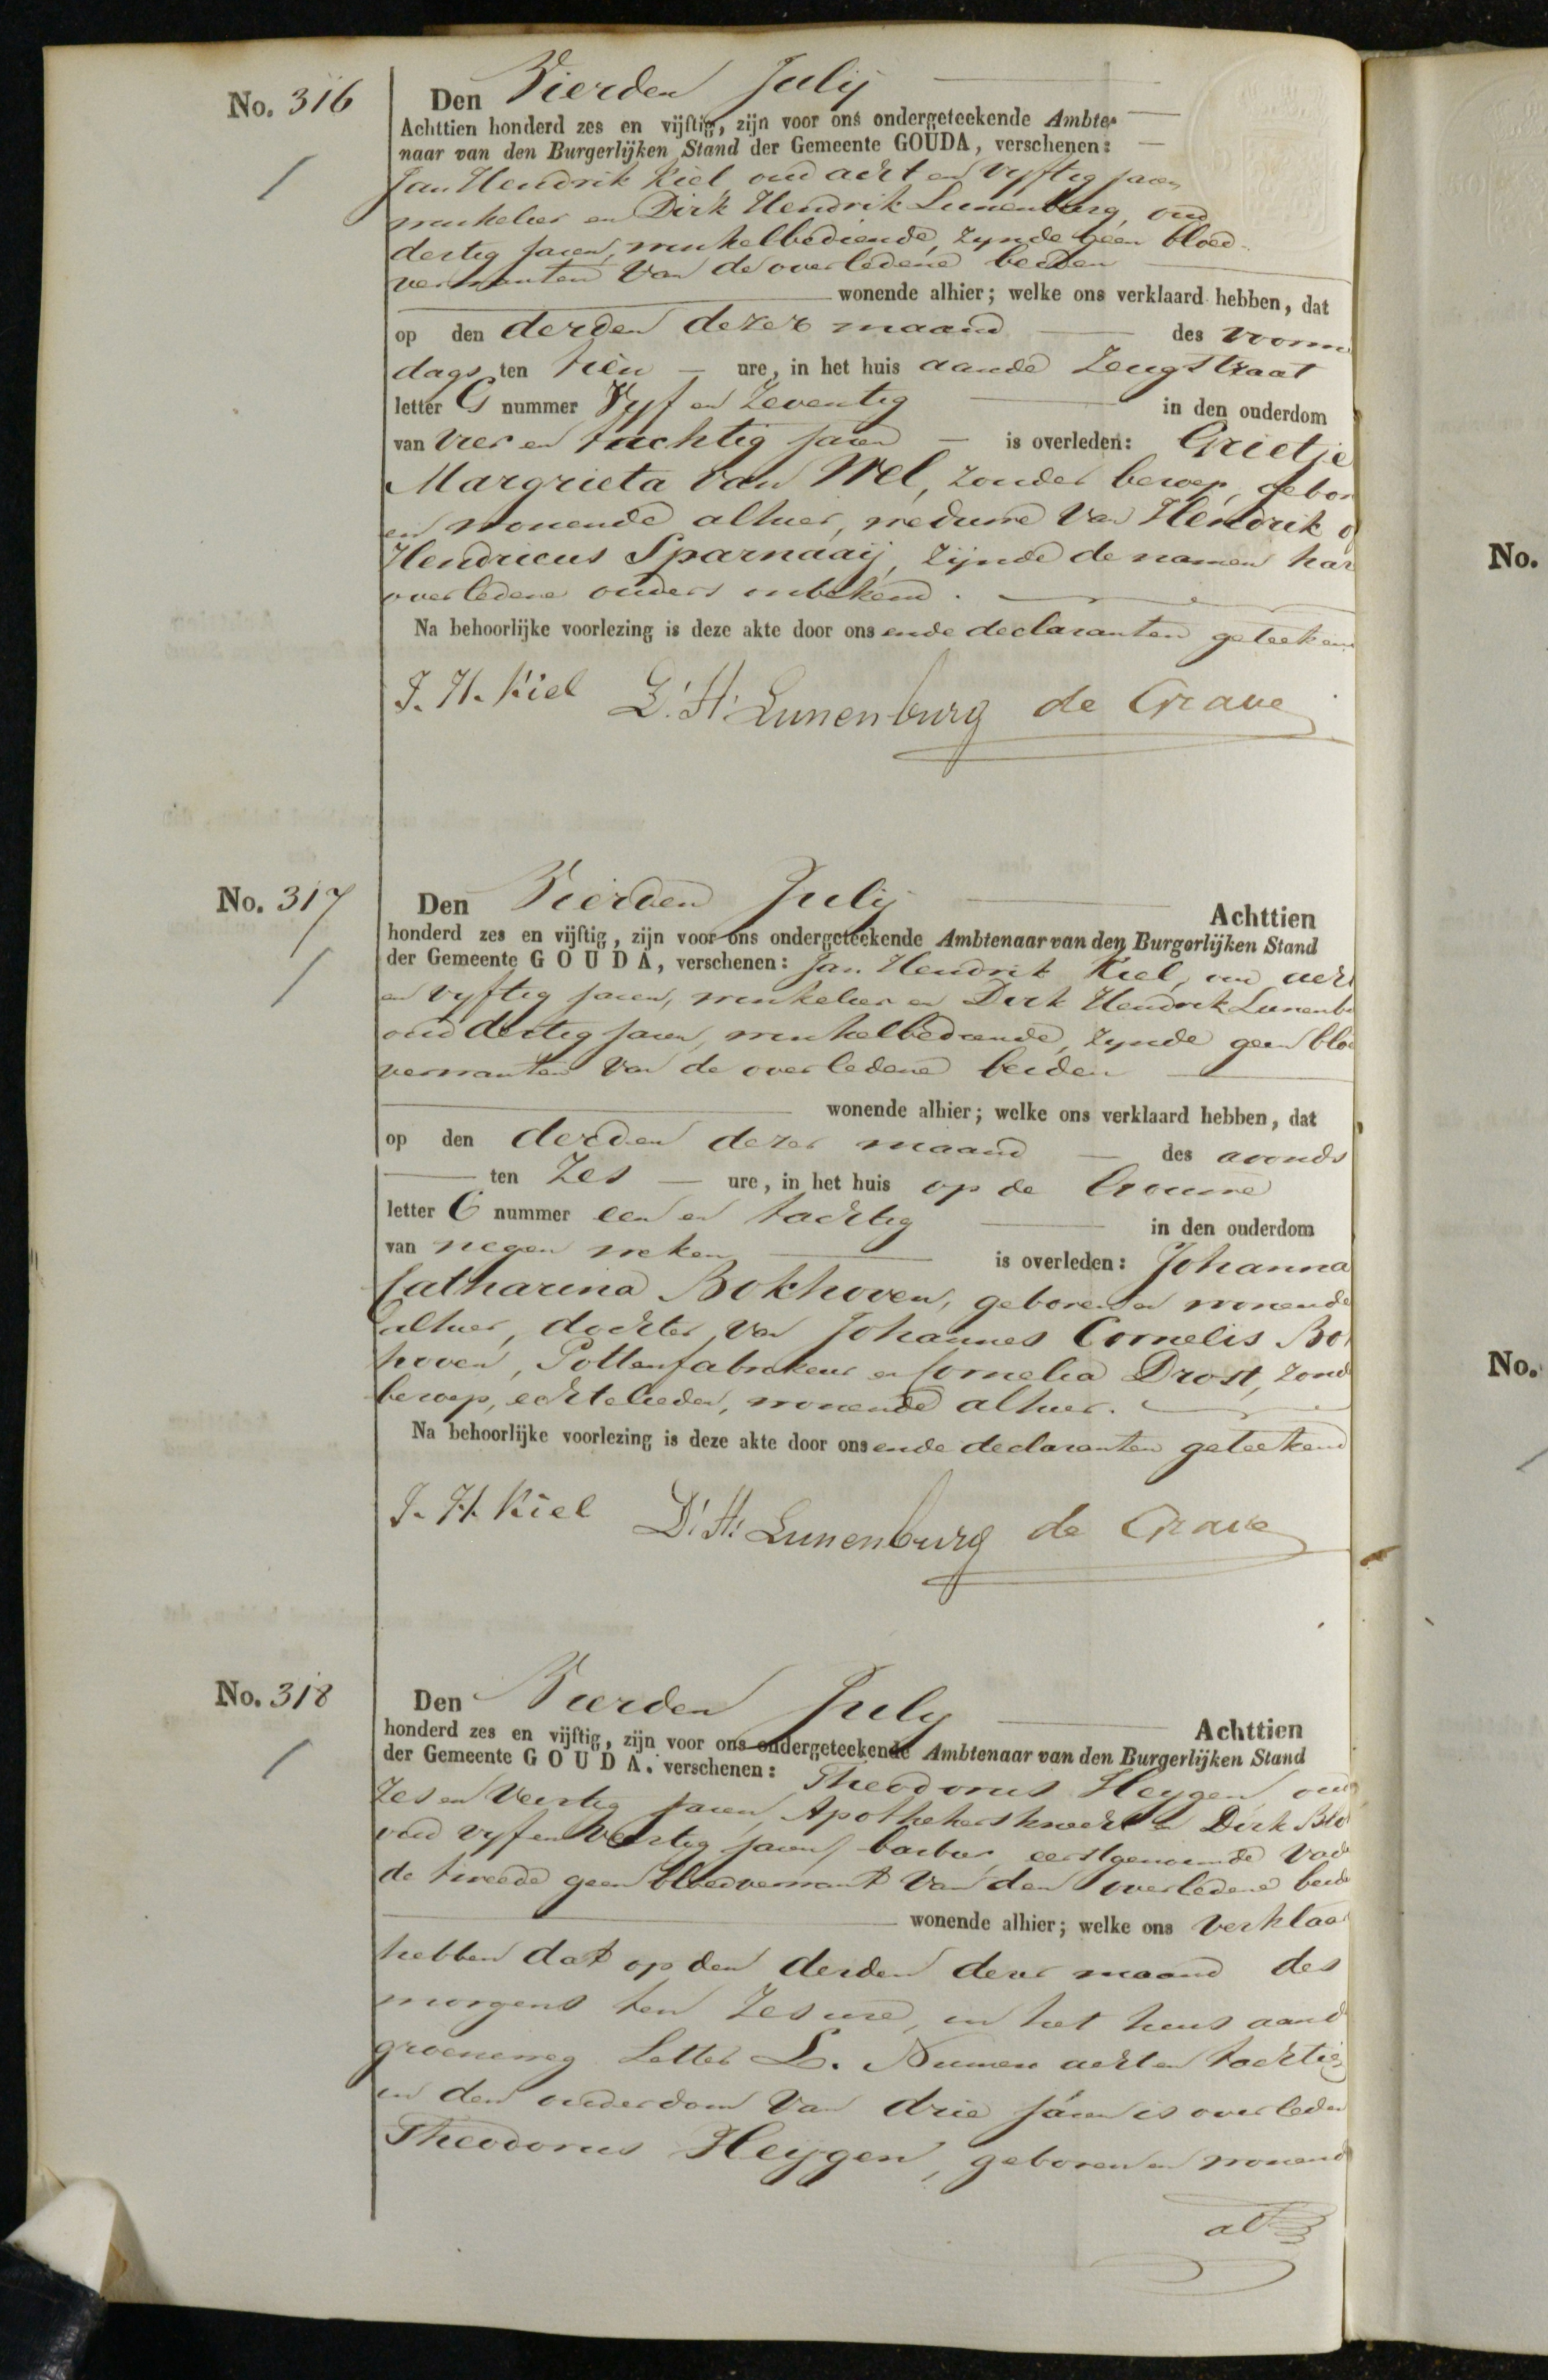 No. 316
Den Vierden Julij
Achttien honderd zes en vijftig, zijn voor ons ondergeteekende Ambte-
naar van den Burgerlijken Stand der Gemeente GOUDA, verschenen:
Jan Hendrik Kiel, oud acht en vyftig jaren,
winkelier en Dirk Hendrik Lunenburg, oud
dertig jaren, winkelbediende, zynde geen bloed-
verwanten van de overledene beiden
wonende alhier; welke ons verklaard hebben, dat
op den derden dezer maand des voormid
dags ten tien ure, in het huis aan de Zeugstraat
letter G nummer Vyf en Zeventig in den ouderdom
van vier en tachtig jaren is overleden: Grietje
Margrieta van Wel, zonder beroep, gebor
en wonende alhier, weduwe van Hendrik o
Hendricus Sparnaaij, zijnde de namen har
overledene ouders onbekend.
Na behoorlijke voorlezing is deze akte door ons ende declaranten geteekend
J. H. Kiel D. H. Lunenburg de Grave
No. 317
Den Vierden Julij Achttien
honderd zes en vijftig, zijn voor ons ondergeteekende Ambtenaar van den Burgerlijken Stand
der Gemeente GOUDA, verschenen: Jan Hendrik Kiel, oud acht
en vyftig jaren, winkelier en Dirk Hendrik Lunenbu
oud dertig jaren, winkelbediende, zynde geen bloe
verwanten van de overledene beiden
wonende alhier; welke ons verklaard hebben, dat
op den derden dezer maand des avonds
ten Zes ure, in het huis op de Gouwe
letter C nummer een en tachtig in den ouderdom
van negen weken is overleden: Johanna
Catharina Bokhoven, geboren en wonende
alhier, dochter van Johannes Cornelis Bok
hoven, Pottenfabrikeur en Cornelia Drost, zond
beroep, echtelieden, wonende alhier.
Na behoorlijke voorlezing is deze akte door ons ende declaranten geteekend
J. H. Kiel D. H. Lunenburg de Grave
No. 318
Den Vierden July Achttien
honderd zes en vijftig, zijn voor ons ondergeteekende Ambtenaar van den Burgerlijken Stand
der Gemeente GOUDA. verschenen: Theodorus Heygen, oud
Zes en Veertig jaren, Apothekersknecht en Dirk Blo
oud vyf en Veertig jaren, barbier, eerstgenoemde vad
de tweede geen bloedverwant van den overledene beide
wonende alhier; welke ons verklaar
hebben dat op den derden dezer maand des
morgens ten Zes ure, in het huis aand
groeneweg Letter L. Numero acht en tachtig
in den ouderdom van drie jaren is overleden
Theodorus Heygen, geboren en wonend
al
No.
No.